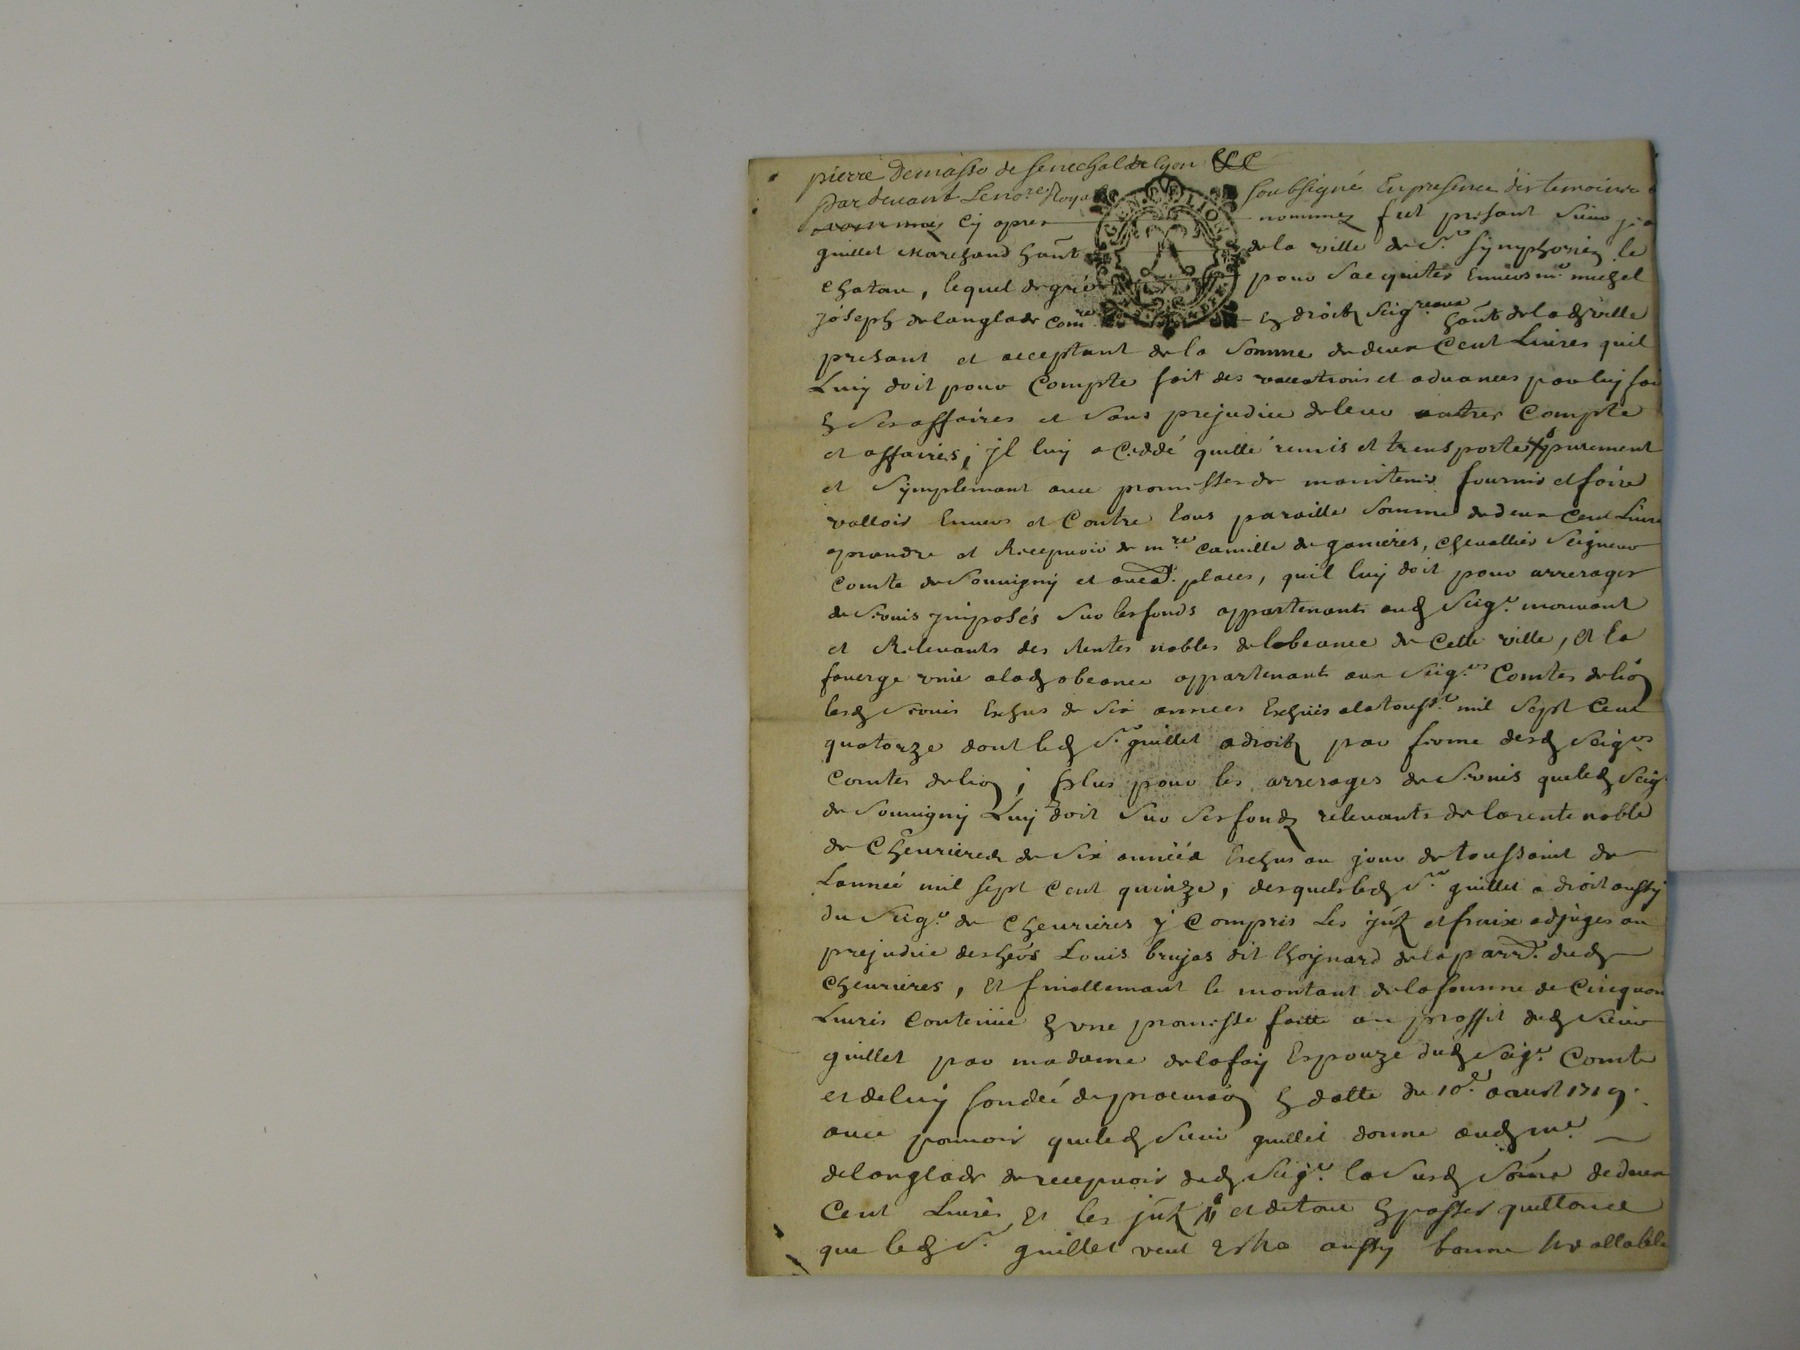 pierre Demasso de senechal de lyon &c
Pardevant Le no.re Royal soubsigné En presence des temoins
cy apres nommez fut presant sieur
guillet Marchand hant de la ville de St. Synphorien le
chatau, lequel de gré pour Sacquiter Envers mr. michel
joseph delanglade com.re En droits Seig.reaux hant de lad ville
presant et acceptant de la Somme de deux Cent Livres quil
Luy doit pour Compte fait des vaccations et advances par luy
En Ses affaires et Sans prejudice de leur autres Compte
et affaires, jl luy a Ceddé quitté remis et transporté purement
et Symplemant avec promesses de maintenir fournir et faire
valloir Envers et Contre tous pareille Somme de deux Cent Livres
aprandre et Recepvoir de m.re Camille de ganieres, chevallier Seigneur
Comte de Souvigny et places, quil luy doit pour arrerages
de Servis jmposés Sur les fonds appartenants aud Seigr. mouvant
et Relevants des Rentes nobles de lobeance de Cette ville, et la
faverge unie a lad obeance appartenants aux Seig.rs Comtes de lion
lesd Servis Eschus de Six annees Escheües a la touss.t mil Sept Cent
quatorze dont led Sr. guillet a droit par ferme desd Seig.rs
Comtes de lion ; Plus pour les arrerages de Servis que led Seigr
de Souvigny Luy doit Sur Ses fonds relevants de la rente noble
de Chevrieres de Six années Eschus au jour de toussaint de
Lannée mil Sept Cent quinze, desquels led Sr. guillet a droit aussy
du Seigr. de Chevrieres y Compris Les et fraix adjuges au
prejudice des Louis brujas dit de la parr. dud
Chevrieres, et finallemant le montant de la somme de Cinquante
Livres Contenüe En une promesse faitte au proffit dud Sieur
guillet par madame de lafay Espouze dud Seigr. Comte
et de luy fondée de procuraon En datte du 10.e aoust 1719.
avec pouvoir que led Sieur guillet donne aud me.
delanglade de recepvoir dud Seigr. la Susd Some de deux
Cent Livres, et les et de tout En passer quittance
que led Sr. guillet veut Estre aussy bonne